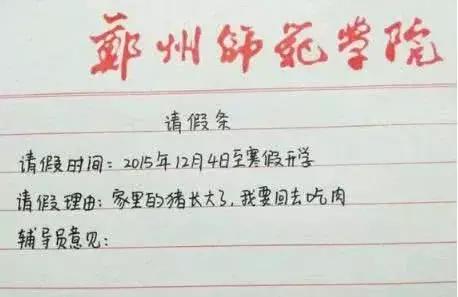 鄭州师范学院
请假条
请假时间：2015年12月4日至寒假开学
请假理由：家里的猪长大了，我要回去吃肉
辅导员意见：